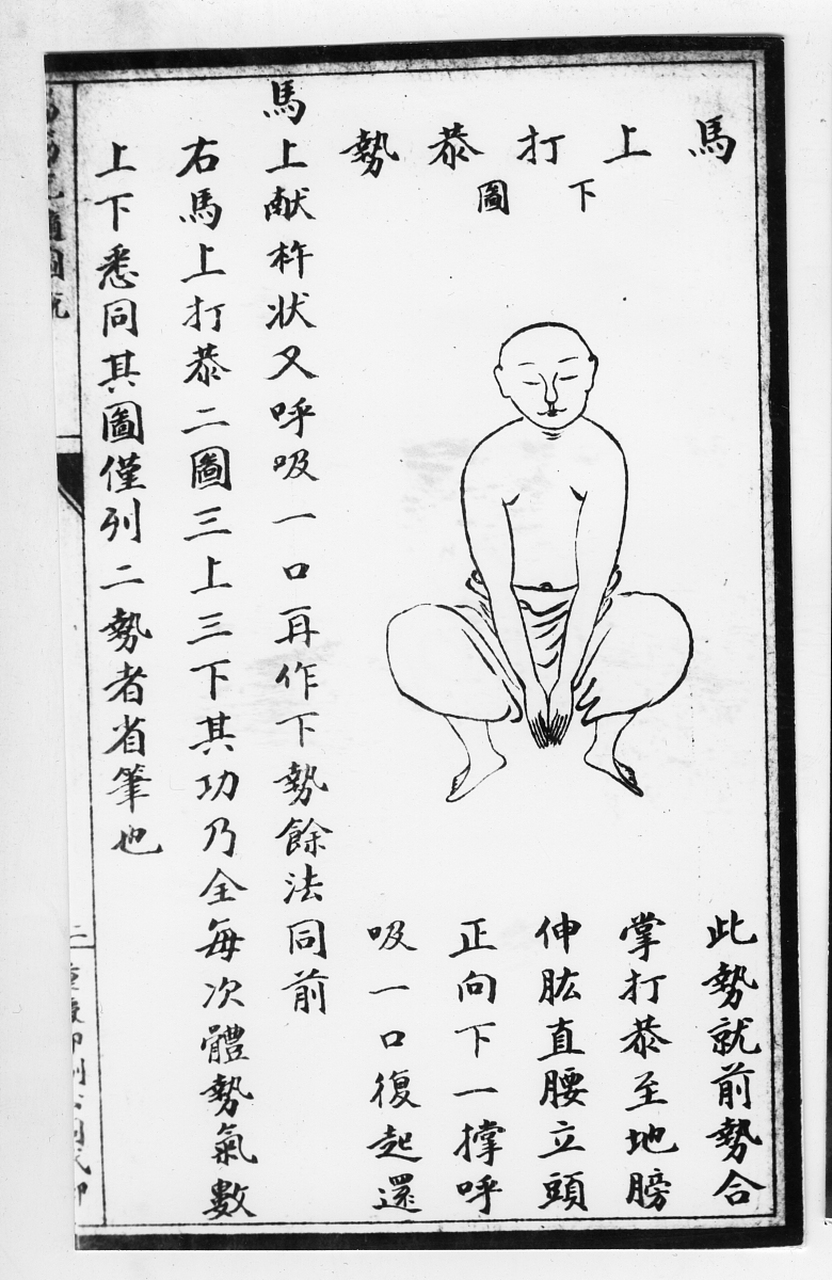 馬上打恭勢
下圖
此勢就前勢合
掌打恭至地膀
伸肱直腰立頭
正向下一撑呼
吸一口復起還
馬上献杵状又呼吸一口再作下勢餘法同前
右馬上打恭二圖三上三下其功乃全每次體勢氣數
上下悉同其圖僅列二勢者省筆也